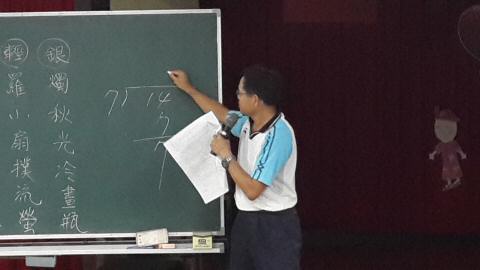 銀燭秋光冷畫瓶
輕羅小扇撲流螢
7)14
7
7